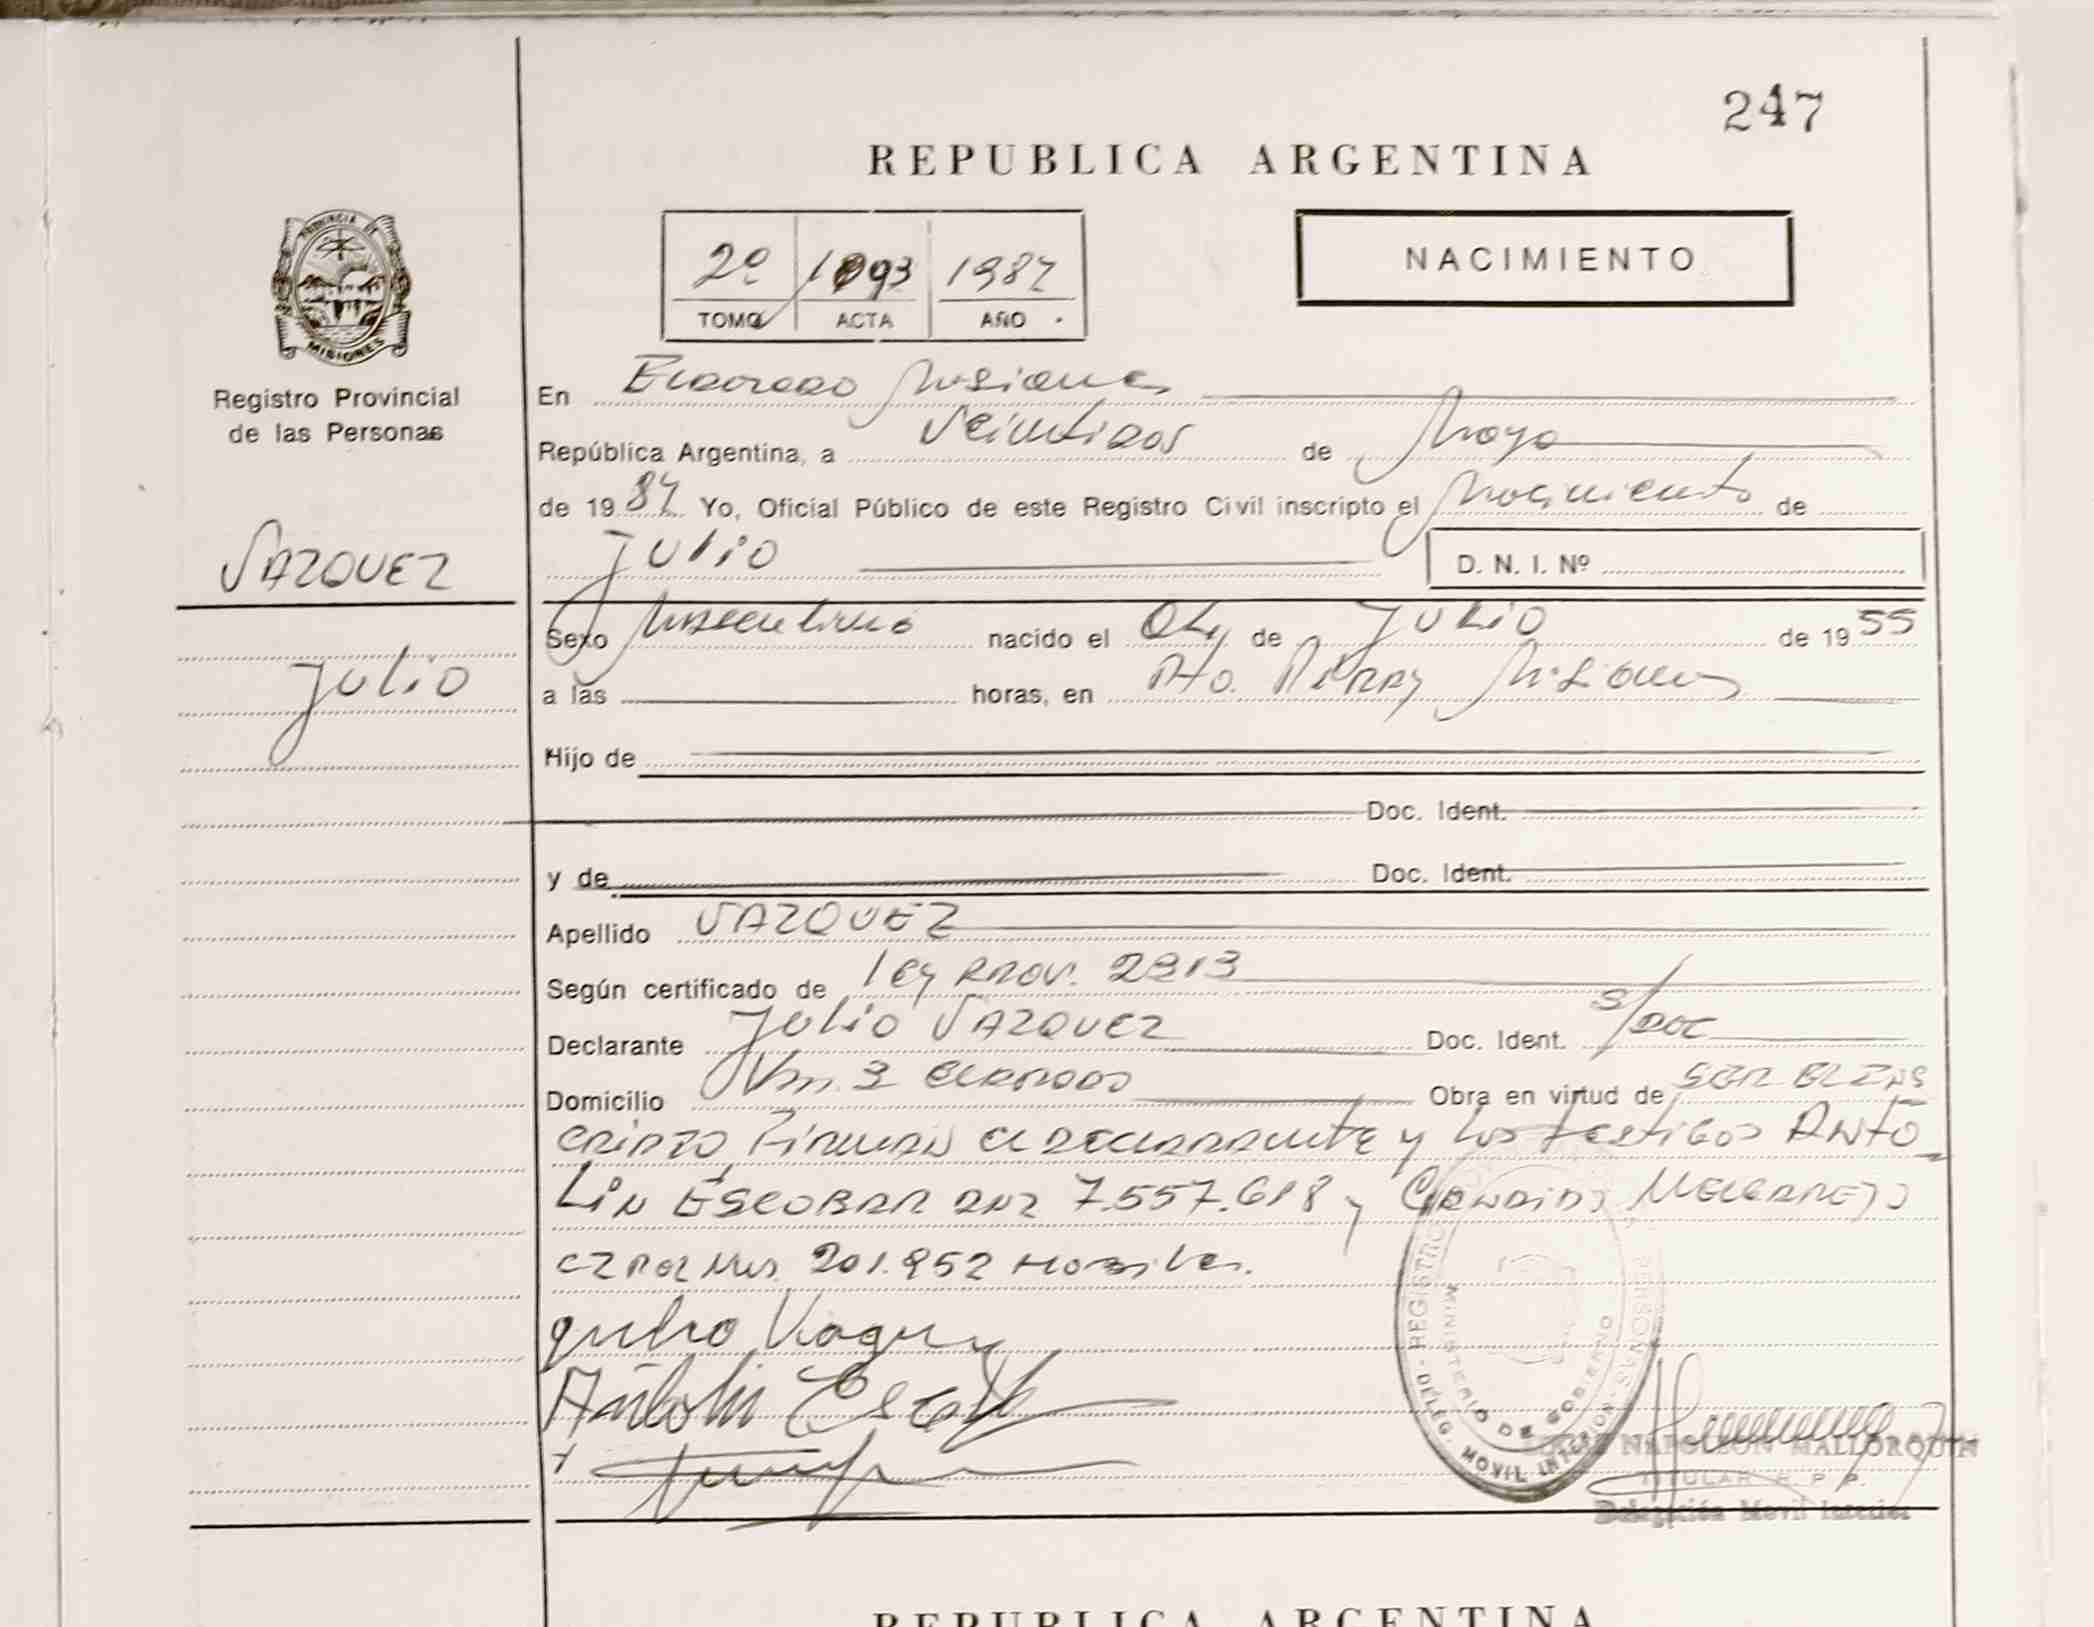 247
REPUBLICA ARGENTINA
2º 1093 1987
TOMO ACTA AÑO
NACIMIENTO
PROVINCIA DE MISIONES
Registro Provincial
de las Personas
VAZQUEZ
Julio
En Eldorado Misiones
República Argentina, a Veintidos de Mayo
de 1987 Yo, Oficial Público de este Registro Civil inscripto el Nacimiento de
Julio D. N. I. Nº
Sexo Masculino nacido el 04 de Julio de 1955
a las horas, en Pto. Piray Misiones
Hijo de
Doc. Ident.
y de Doc. Ident.
Apellido VAZQUEZ
Según certificado de Ley Prov. 2313
Declarante Julio VAZQUEZ Doc. Ident. S/Doc
Domicilio Km. 3 Eldorado Obra en virtud de ser El Ins
cripto Firman el Declarante y los testigos ANTO
LIN ESCOBAR DNI 7.557.618 y Candido Melgarejo
CI Pol Mis. 201.952 Habiles.
Julio Vazquez
Antolin Escobar
REGISTRO PERSONAS
MINISTERIO DE GOBIERNO
DELEG. MOVIL INTERIOR
NAPOLEON MALLORQUIN
TITULAR R. P. P.
Delegación Movil Interior
REPUBLICA ARGENTINA